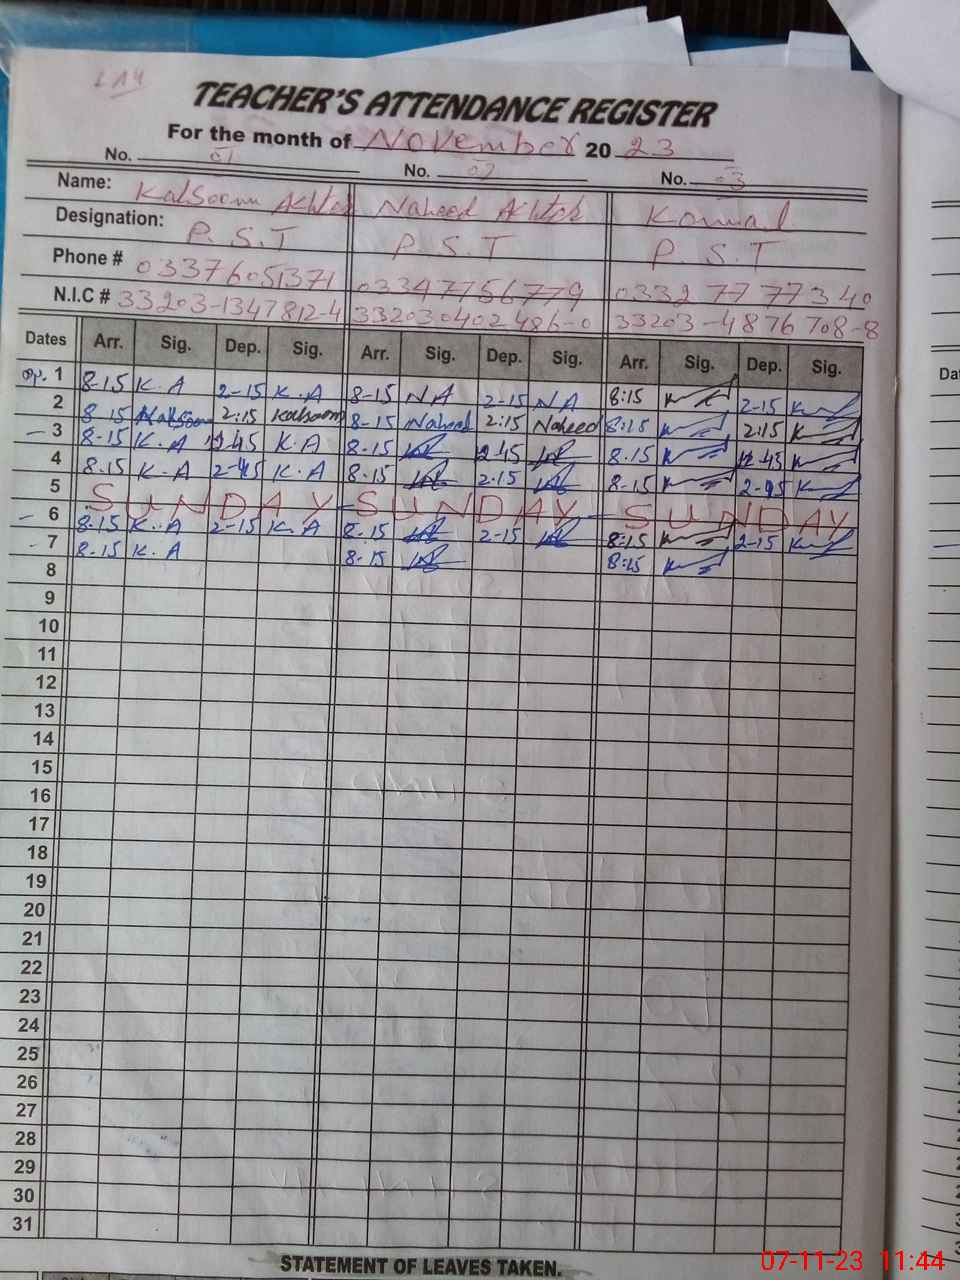 TEACHER'S ATTENDANCE REGISTER
For the month of November 20 23
No. 01 No. 02 No. 03
Name: Kalsoom Akhtar Naheed Akhtar Komal
Designation: P.S.T P.S.T P.S.T
Phone # 03376051371 03347756779 0332 77 77 340
N.I.C # 33203-1347812-4 332030402486-0 33203-4876708-8
Dates Arr. Sig. Dep. Sig. Arr. Sig. Dep. Sig. Arr. Sig. Dep. Sig.
1 8-15 K.A 2-15 K.A 8-15 NA 2-15 NA 8:15 2-15
2 8-15 Kalsoom 2:15 Kalsoom 8-15 Naheed 2:15 Naheed 8:15 2:15
3 8-15 K.A 12-45 K.A 8-15 12-45 8-15 12-45
4 8-15 K.A 2-45 K.A 8-15 2-15 8-15
5 SUNDAY - SUNDAY - SUNDAY
6 8-15 K.A 2-15 K.A 8-15 2-15 8:15 2-15
7 8-15 K.A 8-15 8:15
8
9
10
11
12
13
14
15
16
17
18
19
20
21
22
23
24
25
26
27
28
29
30
31
STATEMENT OF LEAVES TAKEN.
07-11-23 11:44